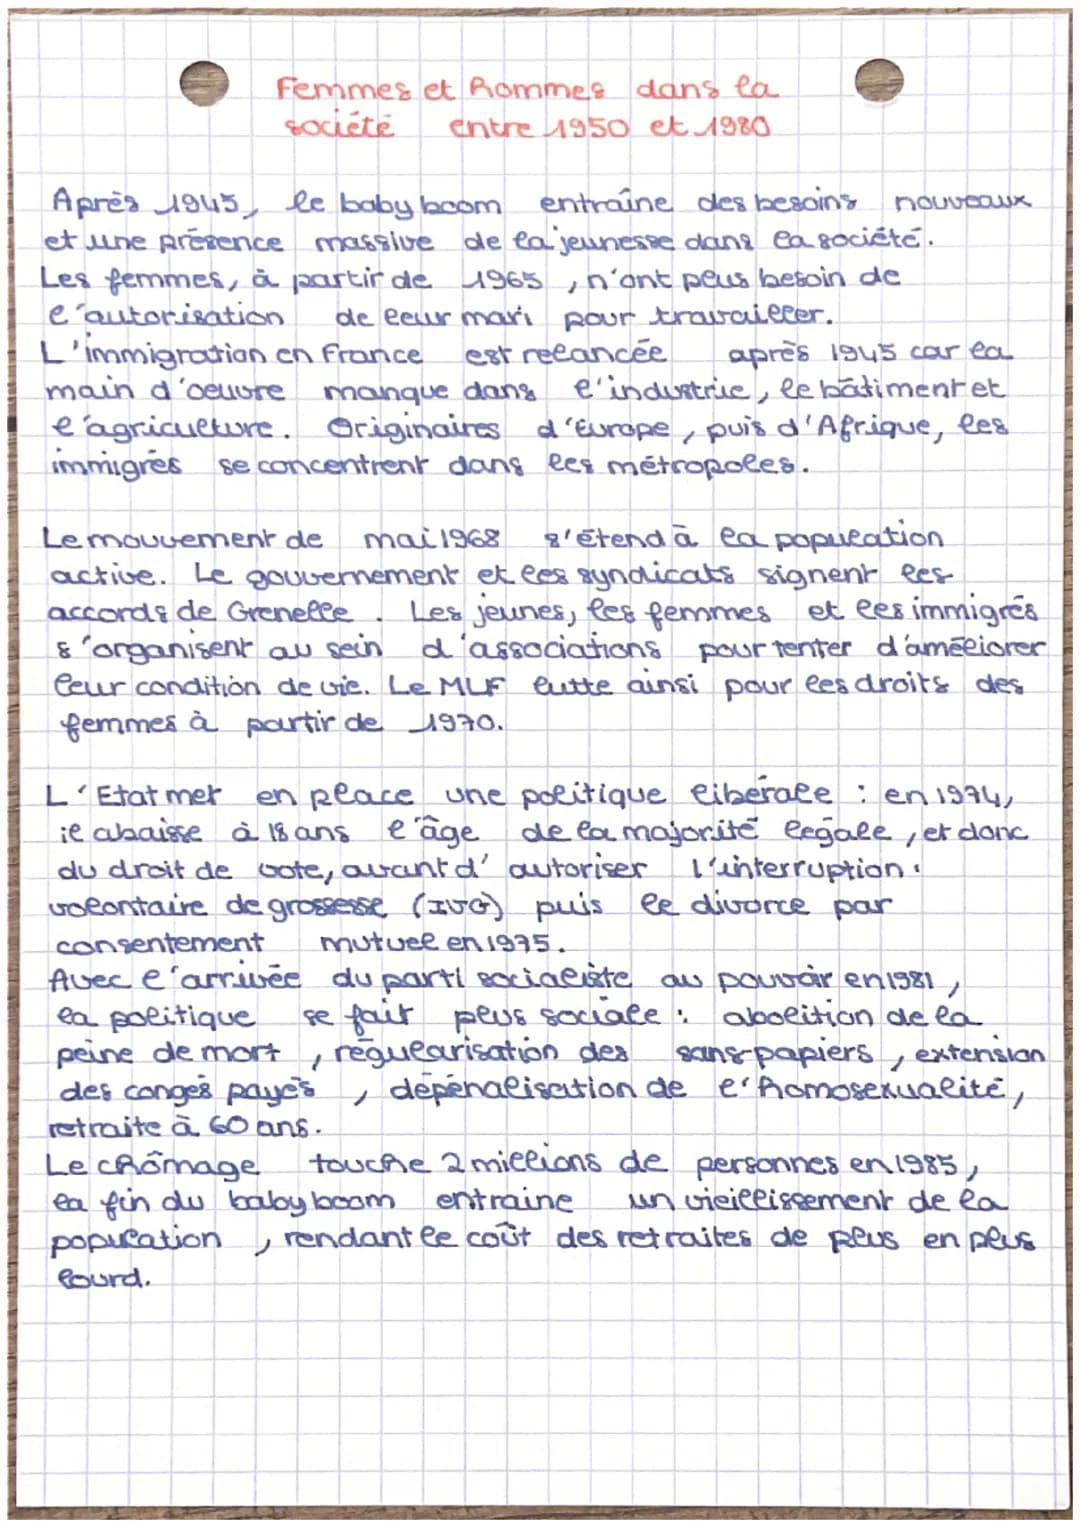 Femmes et hommes dans la
société entre 1950 et 1980
Après 1945, le baby boom entraîne des besoins nouveaux
et une présence massive de la jeunesse dans la société.
Les femmes, à partir de 1965, n'ont plus besoin de
l'autorisation de leur mari pour travailler.
L'immigration en France est relancée après 1945 car la
main d'oeuvre manque dans l'industrie, le bâtiment et
l'agriculture. Originaires d'Europe, puis d'Afrique, les
immigrés se concentrent dans les métropoles.
Le mouvement de mai 1968 s'étend à la population
active. Le gouvernement et les syndicats signent les
accords de Grenelle. Les jeunes, les femmes et les immigrés
s'organisent au sein d'associations pour tenter d'améliorer
leur condition de vie. Le MLF lutte ainsi pour les droits des
femmes à partir de 1970.
L'Etat met en place une politique libérale : en 1974,
il abaisse à 18 ans l'âge de la majorité légale, et donc
du droit de vote, avant d'autoriser l'interruption
volontaire de grossesse (IVG) puis le divorce par
consentement mutuel en 1975.
Avec l'arrivée du parti socialiste au pouvoir en 1981,
la politique se fait plus sociale : abolition de la
peine de mort, régularisation des sans-papiers, extension
des congés payés, dépénalisation de l'homosexualité,
retraite à 60 ans.
Le chômage touche 2 millions de personnes en 1985,
la fin du baby boom entraine un vieillissement de la
population, rendant le coût des retraites de plus en plus
lourd.